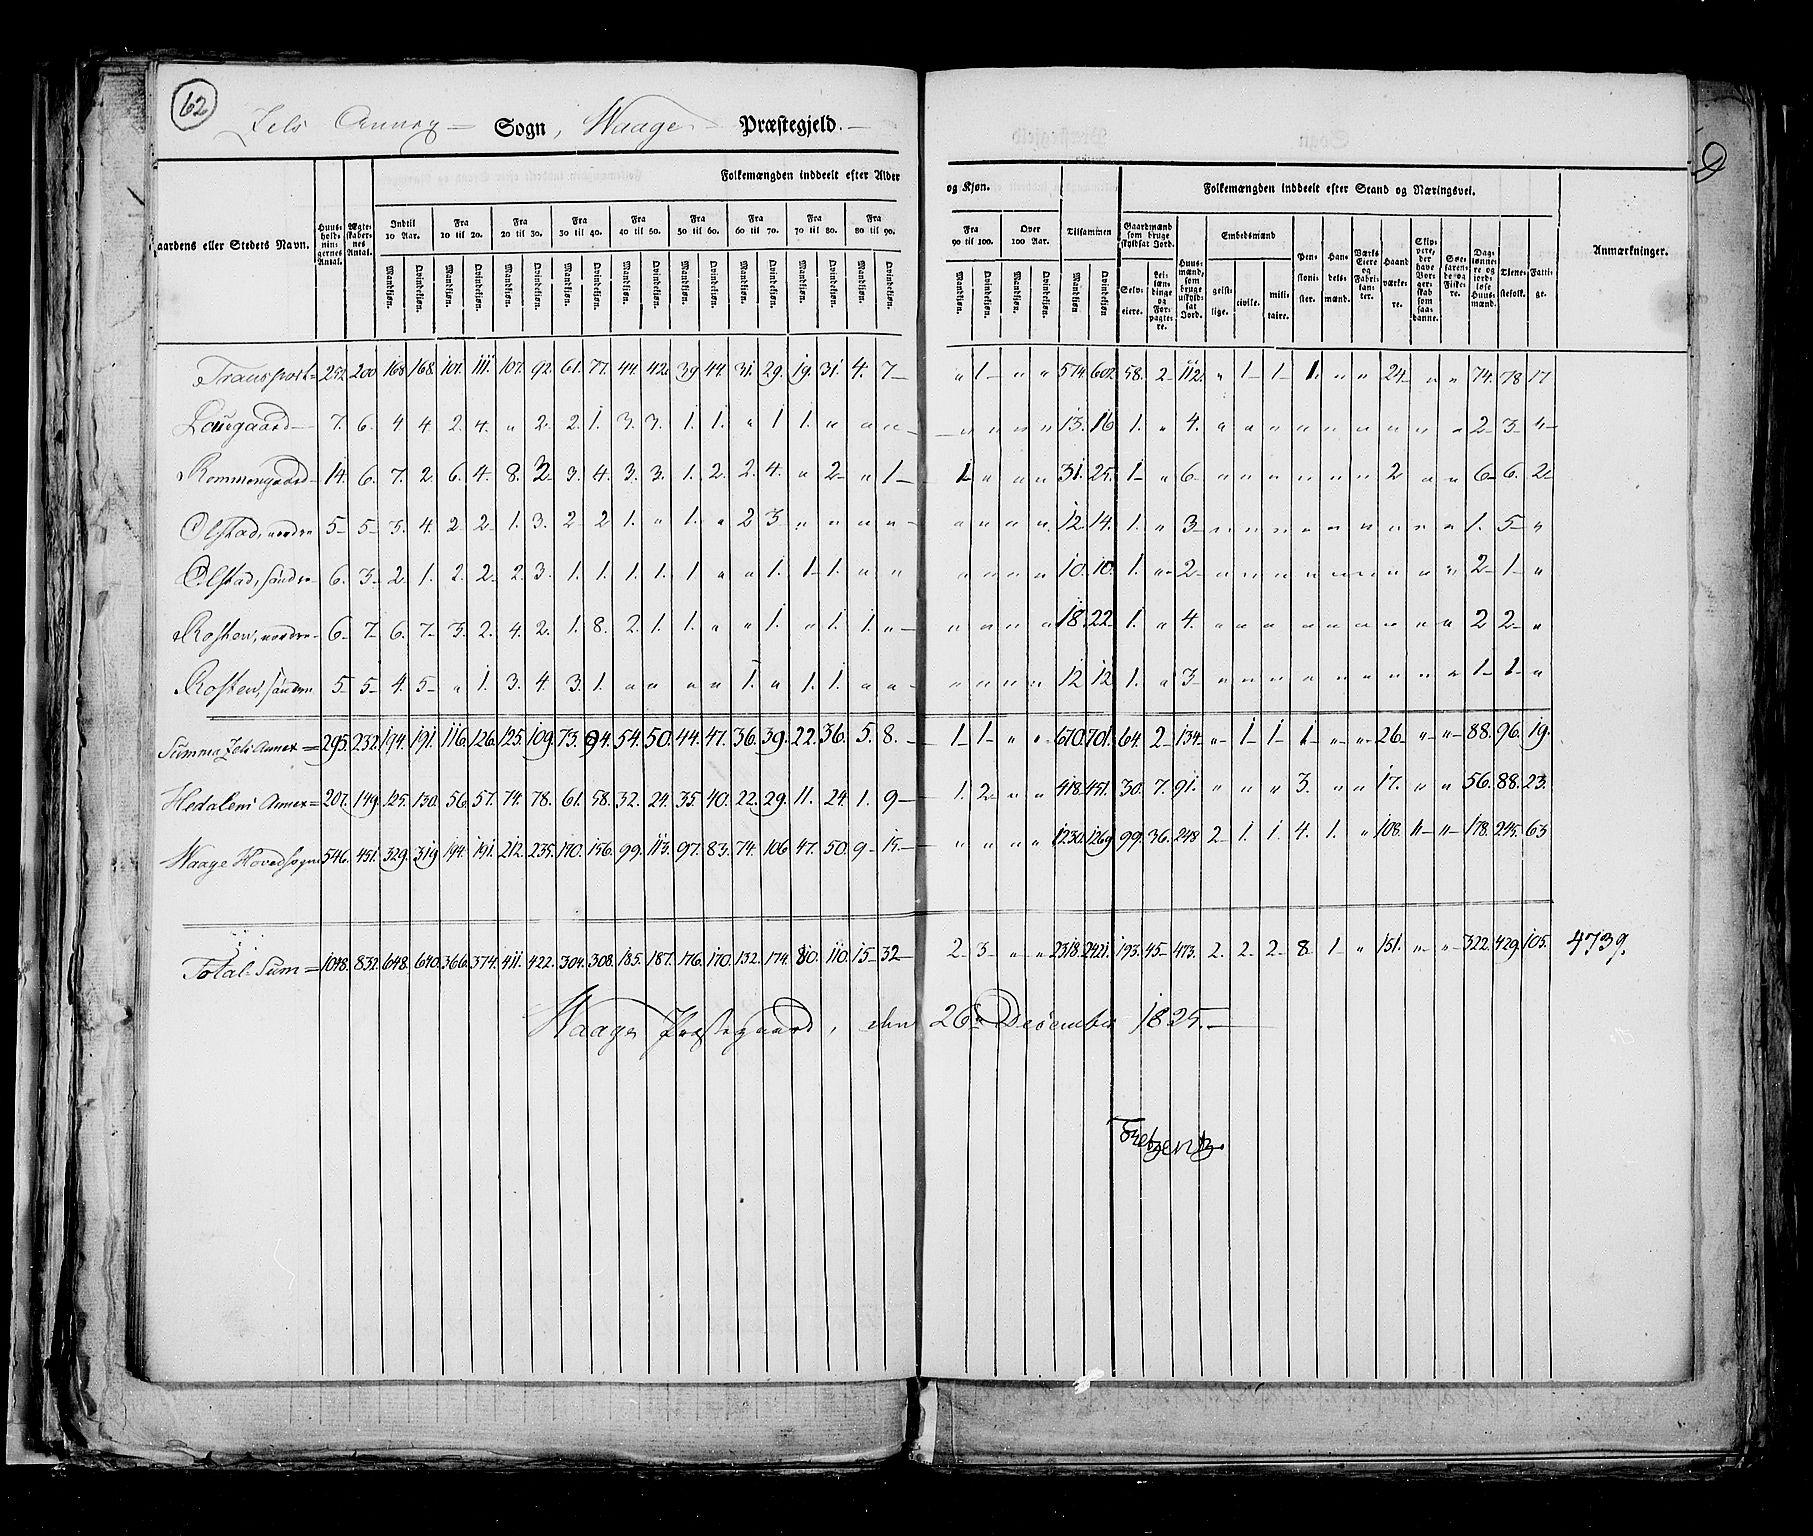 62
Zels Annex Sogn, Waage Præstegjeld.
Folkemængden inddeelt efter Alder og Kjøn. Folkemængden inddeelt efter Stand og Næringsvei.
aardens eller Stedets Navn. Huusholdningernes Antal. Ægteskabernes Antal. Indtil 10 Aar. Fra 10 til 20. Fra 20 til 30. Fra 30 til 40. Fra 40 til 50. Fra 50 til 60. Fra 60 til 70. Fra 70 til 80. Fra 80 til 90. Fra 90 til 100. Over 100 Aar. Tilsammen Gaardmænd som bruge skyldsat Jord. Huusmænd, som bruge uskyldsat Jord. Embedsmænd Pensionister. Handelsmænd. Værks Eiere og Fabrikanter. Haandværkere. Skippere, der have Borgerskab som saadanne. Søefarende og Fiskere. Dagleønnere og jordløse Huusmænd. Tienestefolk. Fattige. Anmærkninger.
Mandkjøn. Qvindekjøn. Mandkjøn. Qvindekjøn. Mandkjøn. Qvindekjøn. Mandkjøn. Qvindekjøn. Mandkjøn. Qvindekjøn. Mandkjøn. Qvindekjøn. Mandkjøn. Qvindekjøn. Mandkjøn. Qvindekjøn. Mandkjøn. Qvindekjøn. Mandkjøn. Qvindekjøn. Mandkjøn. Qvindekjøn. Mandkjøn. Qvindekjøn. Selveiere. Leilændinge og Forpagtere. geistlige. civile. militaire.
Transport 252. 200 168 168. 101. 111. 107. 92. 61. 77. 44. 42. 39 44. 31. 29. 19. 31. 4. 7 " 1 " " 574. 602. 58. 2 112. " 1 1 1. " " 24 " " 74. 78 17
Louegaard 7. 6. 4 4. 2. 4. " 2. 2. 1. 3. 3. 1. 1. " 1 1. " " " " " " " 13. 16 1. " 4. " " " " " " " " " 2 3 4
Rommengaard 14. 6. 7. 2. 6. 4. 8. 2 3. 4. 3. 3. 1. 2. 2. 4. " 2 " 1 1 " " " 31. 25. 1 " 6 " " " " " " 2 " " 6 6. 2
Olstad, nordre 5 5 3. 4. 2. 2 1. 3. 2 2 1. " 1. " 2 3 " " " " " " " " 12 14. 1. " 3 " " " " " " " " " 1. 5 "
Olstad, søndre 6. 3 2. 1. 2. 2. 2. 3. 1. 1. 1. 1. 1 " " 1. 1 1. " " " " " " 10. 10. 1. " 2 " " " " " " " " " 2 1 "
Rosten, nordre 6 7 6. 7 3. 2. 4. 2. 1. 8. 2. 1. 1 " " 1. " 1. 1. " " " " " 18. 22 1. " 4. " " " " " " " " " 2 2 "
Rosten, søndre 5 5 4. 5 " 1. 3. 4. 3. 1. " " " " 1. " 1. 1. " " " " " " 12 12 1. " 3 " " " " " " " " " 1 1 "
Summa Zels Annex = 295. 232 194. 191. 116. 126. 125. 109. 73. 94. 54. 50. 44. 47. 36. 39. 22. 36. 5. 8. 1 1 " " 670. 701. 64. 2 134 " 1 1 1 " " 26 " " 88. 96. 19.
Hedalens Annex = 207. 149. 125. 130. 56. 57. 74. 78. 61. 58. 32. 24. 35. 40. 22. 29. 11. 24. 1. 9 1. 2. " " 418. 451. 30. 7. 91. " " " 3. " " 17. " " 56. 88. 23.
Waage Hovedsogn 546. 451. 329. 319 194. 191. 212. 235. 170. 156. 99. 113. 97. 83. 74. 106 47. 50. 9 15. " " " " 1230. 1269 99. 36. 248 2 1. 1. 4. 1. " 108. " " 178. 245. 63
Total-Sum = 1048. 832. 648. 640. 366. 374. 411. 422. 304. 308. 185. 187. 176. 170. 132. 174. 80. 110. 15 32 2. 3 " " 2318. 2421. 193. 45 473. 2. 2. 2. 8. 1 " 151. " " 322. 429. 105. 4739.
Waage Præstegaard, den 26 December 1825.